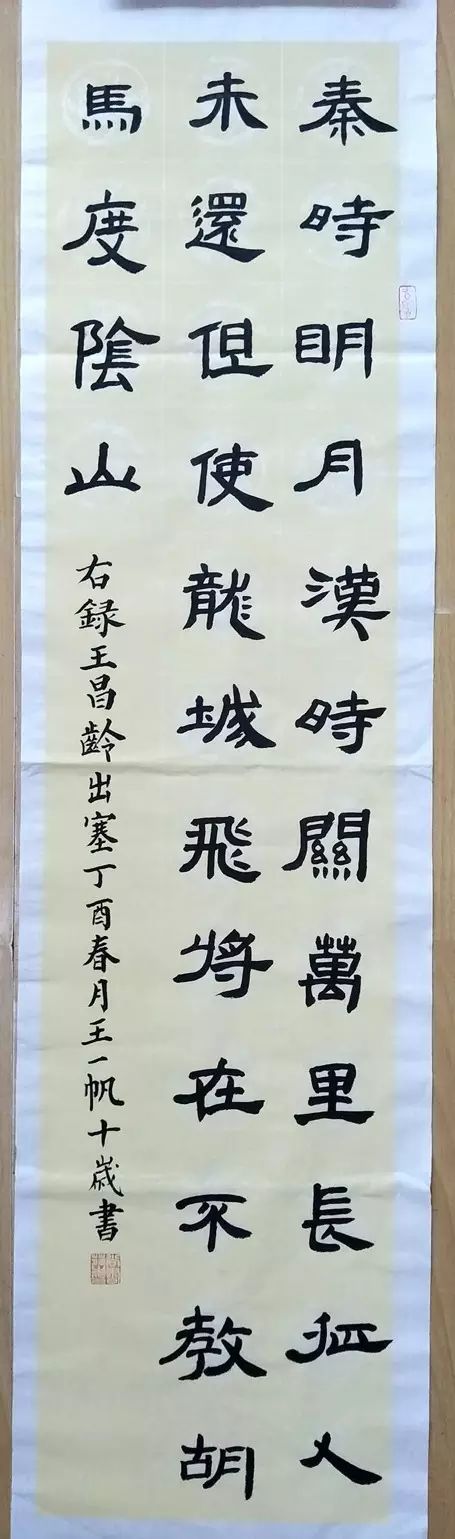 秦時明月漢時關萬里長征人
未還但使龍城飛将在不教胡
馬度陰山
右録王昌齡出塞丁酉春月王一帆十歲書